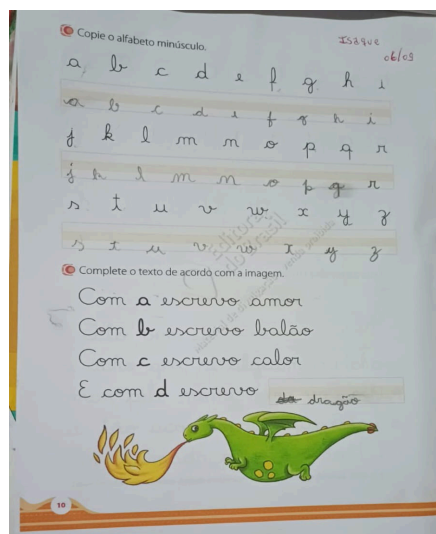 Copie o alfabeto minúsculo.
Isaque
06/09
a b c d e f g h i
a b c d e f g h i
j k l m n o p q r
j k l m n o p q r
s t u v w x y z
s t u v w x y z
Complete o texto de acordo com a imagem.
Com a escrevo amor
Com b escrevo balão
Com c escrevo calor
E com d escrevo dragão
10